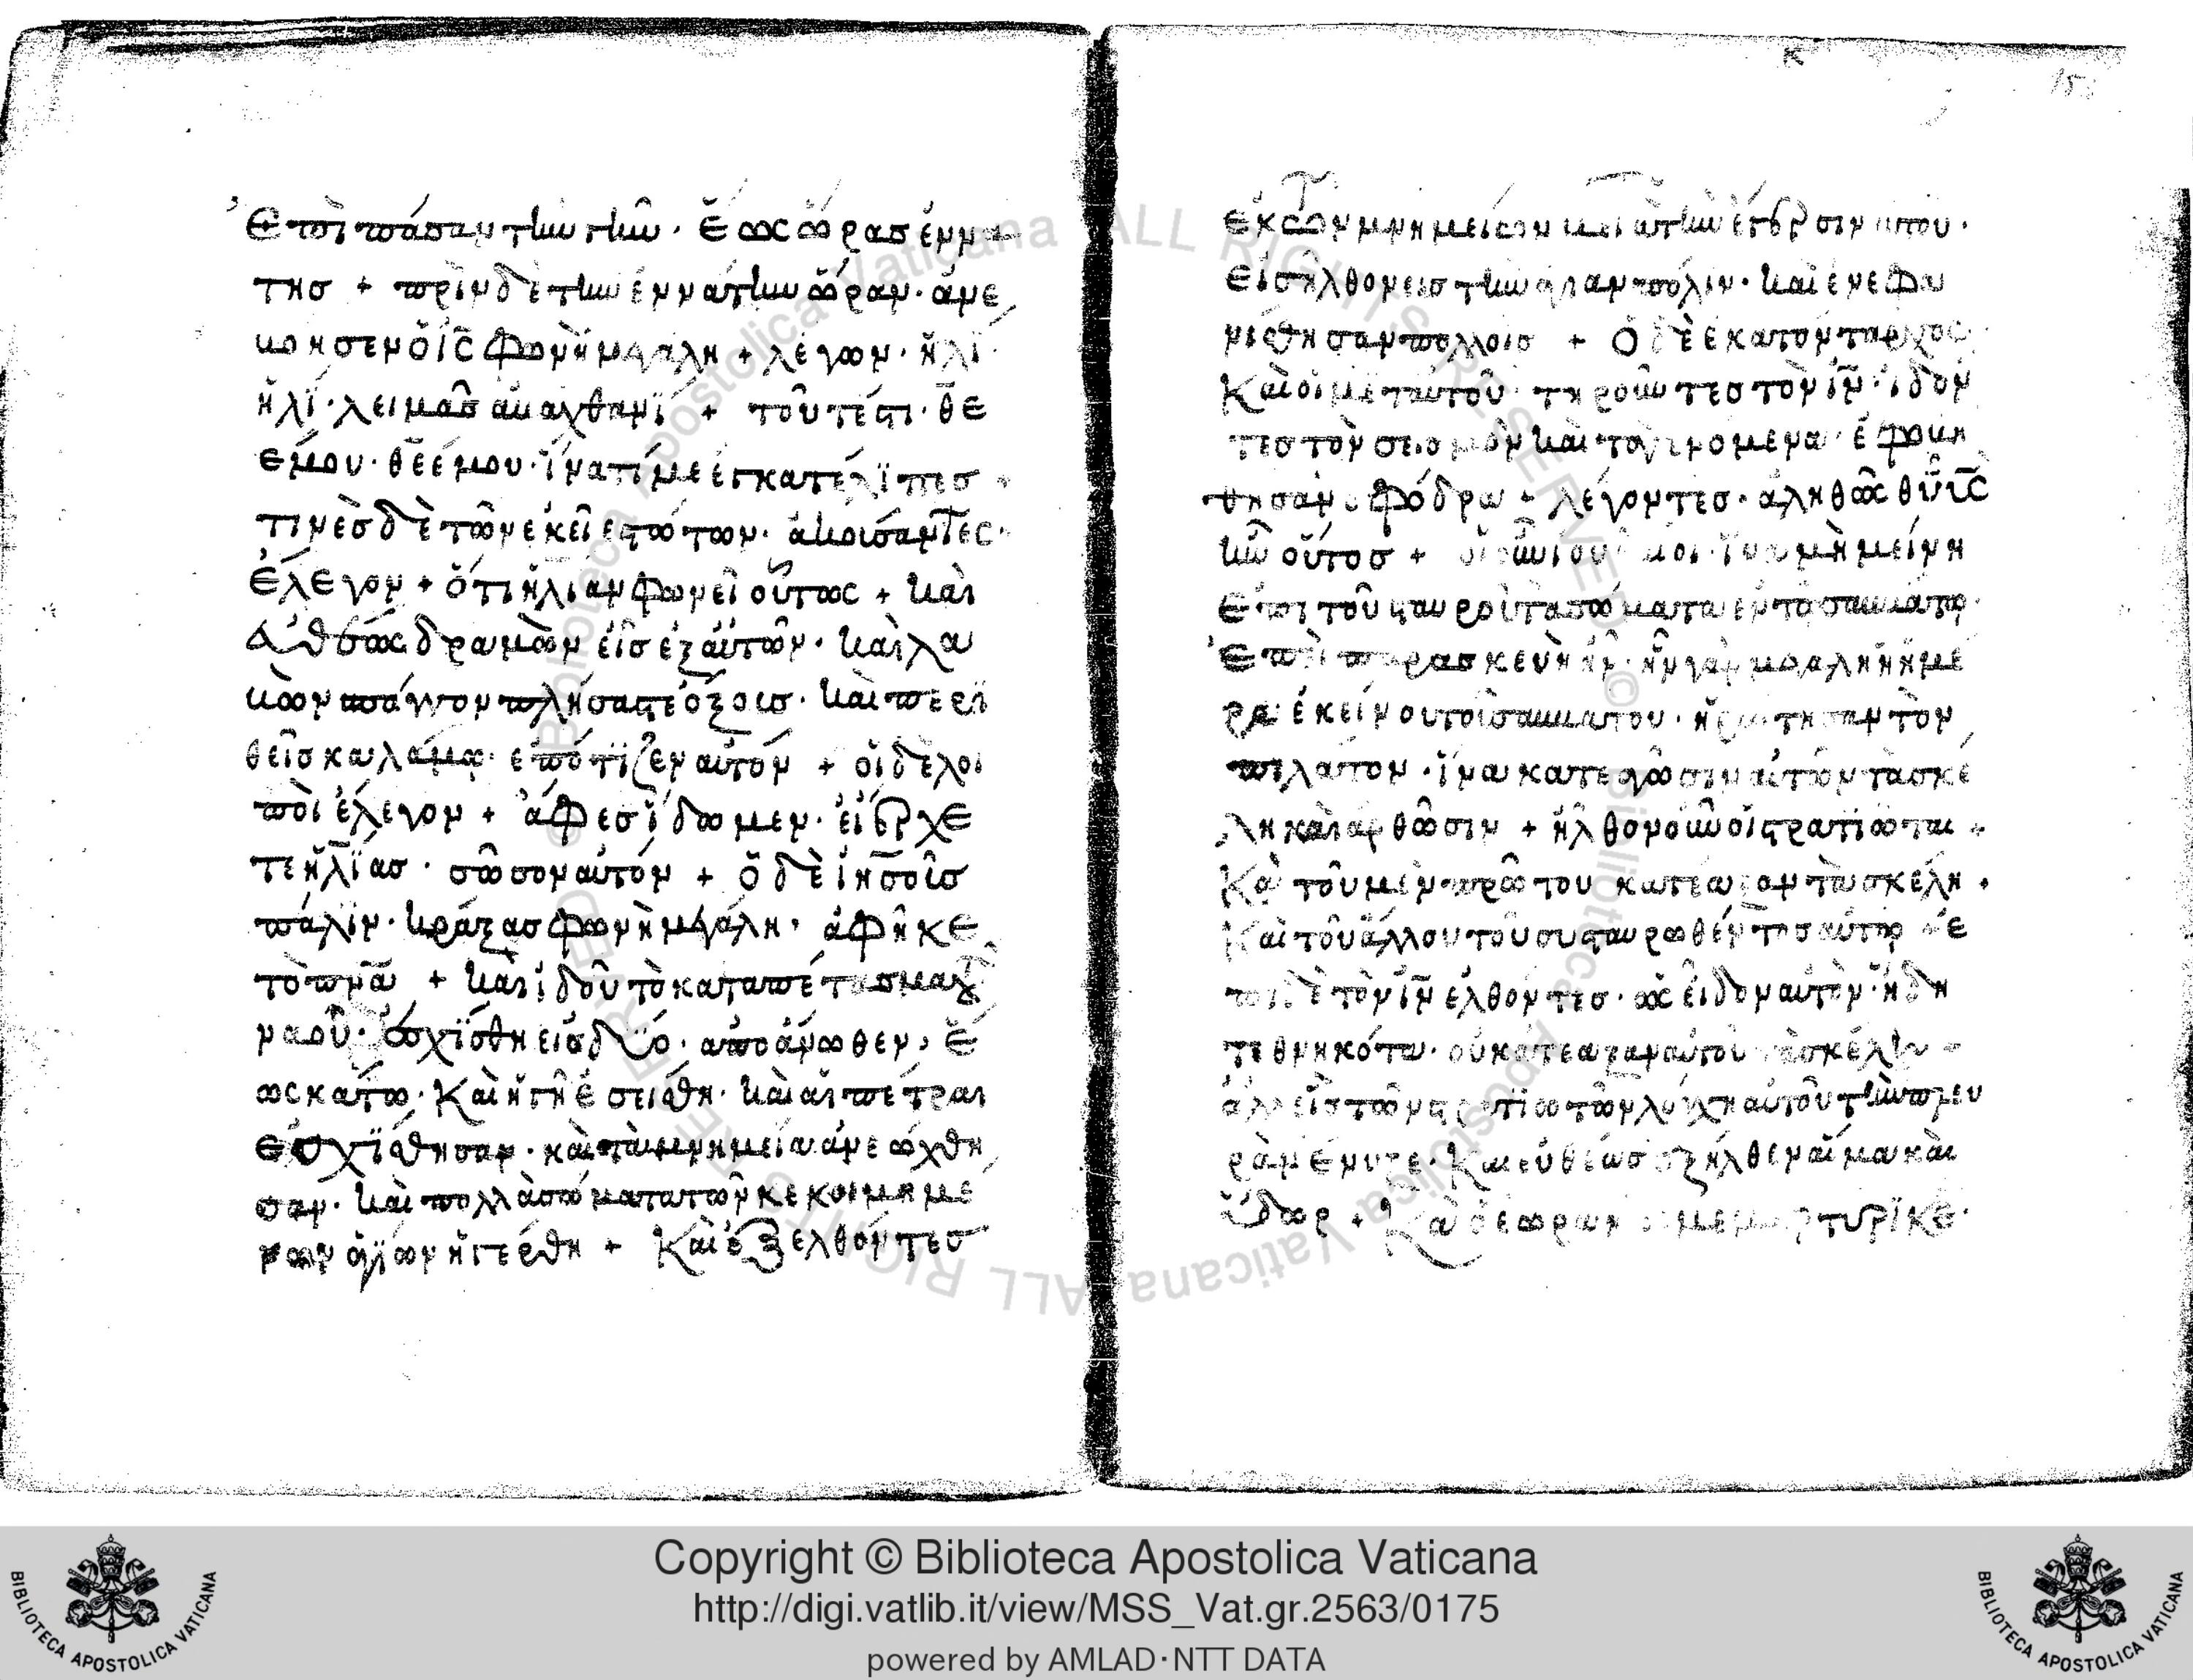 ἐπὶ πᾶσαν τὴν γῆν· ἕως ὥρας ἐννά
της + πρὶν δὲ τὴν ἐννάτην ὥραν· ἀνε
βόησεν ὁ ἰς φωνῆ μεγάλη + λέγων· ἠλὶ
ἠλὶ· λειμᾶσαβαχθανί + τοῦτέστι· θε
ε μου· θεέ μου· ἵνατί με ἐγκατέλϊπες +
τινὲς δὲ τῶν ἐκεῖ ἑστώτων· ἀκούσαντες·
ἔλεγον + ὅτι ἠλίαν φωνεῖ οὗτως + καὶ
εὐθέως δραμὼν εἷς ἐξ αὐτῶν· καὶ λα
βὼν σπόγγον πλήσας τε ὄξους· καὶ περϊ
θεὶς καλάμω· ἐπότϊζεν αὐτόν + οἱ δὲ λοι
ποὶ ἔλεγον + ἄφες ἴδωμεν· εἰ ἔρχε
τε ἠλΐας· σῶσον αὐτόν + ὁ δὲ ἰησοῦς
πάλϊν· κράξας φωνῆ μεγάλη· ἀφῆκε
τὸ πνᾶ + καὶ ἰδοῦ τὸ καταπέτασμα τ
ναοῦ· ἐσχΐσθη εἰς δϋο· ἀπὸ ἄνωθεν, ἕ
ως κάτω· Καὶ ἡ γῆ ἐσείσθη· καὶ αἱ πέτραι
ἐσχΐσθησαν· καὶ τὰ μνημεία ἀνεώχθη
σαν· καὶ πολλὰ σώματα τῶν κεκοιμημέ
νων ἁγΐων ἠγέρθη + Καὶ ἐξελθόντες
κ
ἐκ τῶν μνημείων μετὰ τὴν ἔγερσιν αὐτου·
εἰσῆλθον εις τὴν ἁγίαν πόλιν· καὶ ἐνεφα
νίσθησαν πολλοῖς + Ὁ δὲ ἑκατόνταρχος
Καὶ οἱ μετ αὐτοῦ τηροῦντες τὸν ἰν· ἰδόν
τες τὸν σεισμὸν καὶ τὰ γινόμενα· ἐφοβή
θησαν σφόδρα + λέγοντες· ἀληθῶς θυ ϋς
ἦν οὗτος + οἱ οὖν ἰουδαῖοι· ἵνα μὴ μείνη
ἐπὶ τοῦ σταυροῦ τὰ σώματα ἐν τῶ σαββάτω·
ἐπεὶ παρασκευὴ ἦν· ἦν γὰρ μεγάλη ἡ ἡμέ
ρα ἐκείνου τοῦ σαββάτου· ἠρώτησαν τὸν
πιλάτον· ἵνα κατεαγῶσιν αὐτῶν τὰ σκέ
λη καὶ ἀρθῶσιν + ἦλθον οὖν οἱ στρατϊῶται +
Καὶ τοῦ μὲν πρῶτου κατέαξαν τὰ σκέλη·
Καὶ τοῦ ἄλλου τοῦ συσταυρωθέντος αὐτῶ + ἐ
πὶ δὲ τὸν ἰν ἐλθόντες· ὡς εἶδον αὐτὸν· ἤδη
τεθνηκότα· οὐ κατέαξαν αὐτοῦ τὰ σκέλη +
ἀλλ εἷς τῶν στρατϊωτῶν λόγχη αὐτοῦ τὴν πλευ
ρὰν ἔνυξε· Καὶ εὐθέως ἐξῆλθεν αἷμα καὶ
ὕδωρ + Καὶ ὁ ἑωρακὼς μεμαρτύρϊκε·
Copyright © Biblioteca Apostolica Vaticana
http://digi.vatlib.it/view/MSS_Vat.gr.2563/0175
powered by AMLAD·NTT DATA
BIBLIOTECA APOSTOLICA VATICANA
BIBLIOTECA APOSTOLICA VATICANA